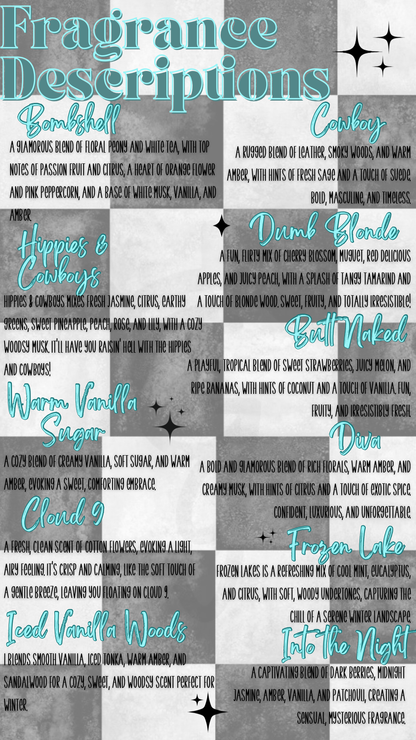 Fragrance
Descriptions
Bombshell
A GLAMOROUS BLEND OF FLORAL PEONY AND WHITE TEA, WITH TOP
NOTES OF PASSION FRUIT AND CITRUS, A HEART OF ORANGE FLOWER
AND PINK PEPPERCORN, AND A BASE OF WHITE MUSK, VANILLA, AND
AMBER.
Cowboy
A RUGGED BLEND OF LEATHER, SMOKY WOODS, AND WARM
AMBER, WITH HINTS OF FRESH SAGE AND A TOUCH OF SUEDE.
BOLD, MASCULINE, AND TIMELESS.
Hippies &
Cowboys
HIPPIES & COWBOYS MIXES FRESH JASMINE, CITRUS, EARTHY
GREENS, SWEET PINEAPPLE, PEACH, ROSE, AND LILY, WITH A COZY
WOODSY MUSK. IT'LL HAVE YOU RAISIN' HELL WITH THE HIPPIES
AND COWBOYS!
Dumb Blonde
A FUN, FLIRTY MIX OF CHERRY BLOSSOM, MUGUET, RED DELICIOUS
APPLES, AND JUICY PEACH, WITH A SPLASH OF TANGY TAMARIND AND
A TOUCH OF BLONDE WOOD. SWEET, FRUITY, AND TOTALLY IRRESISTIBLE!
Butt Naked
A PLAYFUL, TROPICAL BLEND OF SWEET STRAWBERRIES, JUICY MELON, AND
RIPE BANANAS, WITH HINTS OF COCONUT AND A TOUCH OF VANILLA. FUN,
FRUITY, AND IRRESISTIBLY FRESH.
Warm Vanilla
Sugar
A COZY BLEND OF CREAMY VANILLA, SOFT SUGAR, AND WARM
AMBER, EVOKING A SWEET, COMFORTING EMBRACE.
Diva
A BOLD AND GLAMOROUS BLEND OF RICH FLORALS, WARM AMBER, AND
CREAMY MUSK, WITH HINTS OF CITRUS AND A TOUCH OF EXOTIC SPICE.
CONFIDENT, LUXURIOUS, AND UNFORGETTABLE.
Cloud 9
A FRESH, CLEAN SCENT OF COTTON FLOWERS, EVOKING A LIGHT,
AIRY FEELING. IT'S CRISP AND CALMING, LIKE THE SOFT TOUCH OF
A GENTLE BREEZE, LEAVING YOU FLOATING ON CLOUD 9.
Frozen Lake
FROZEN LAKES IS A REFRESHING MIX OF COOL MINT, EUCALYPTUS,
AND CITRUS, WITH SOFT, WOODY UNDERTONES, CAPTURING THE
CHILL OF A SERENE WINTER LANDSCAPE
Iced Vanilla Woods
I BLENDS SMOOTH VANILLA, ICED TONKA, WARM AMBER, AND
SANDALWOOD FOR A COZY, SWEET, AND WOODSY SCENT PERFECT FOR
WINTER.
Into the Night
A CAPTIVATING BLEND OF DARK BERRIES, MIDNIGHT
JASMINE, AMBER, VANILLA, AND PATCHOULI, CREATING A
SENSUAL, MYSTERIOUS FRAGRANCE.